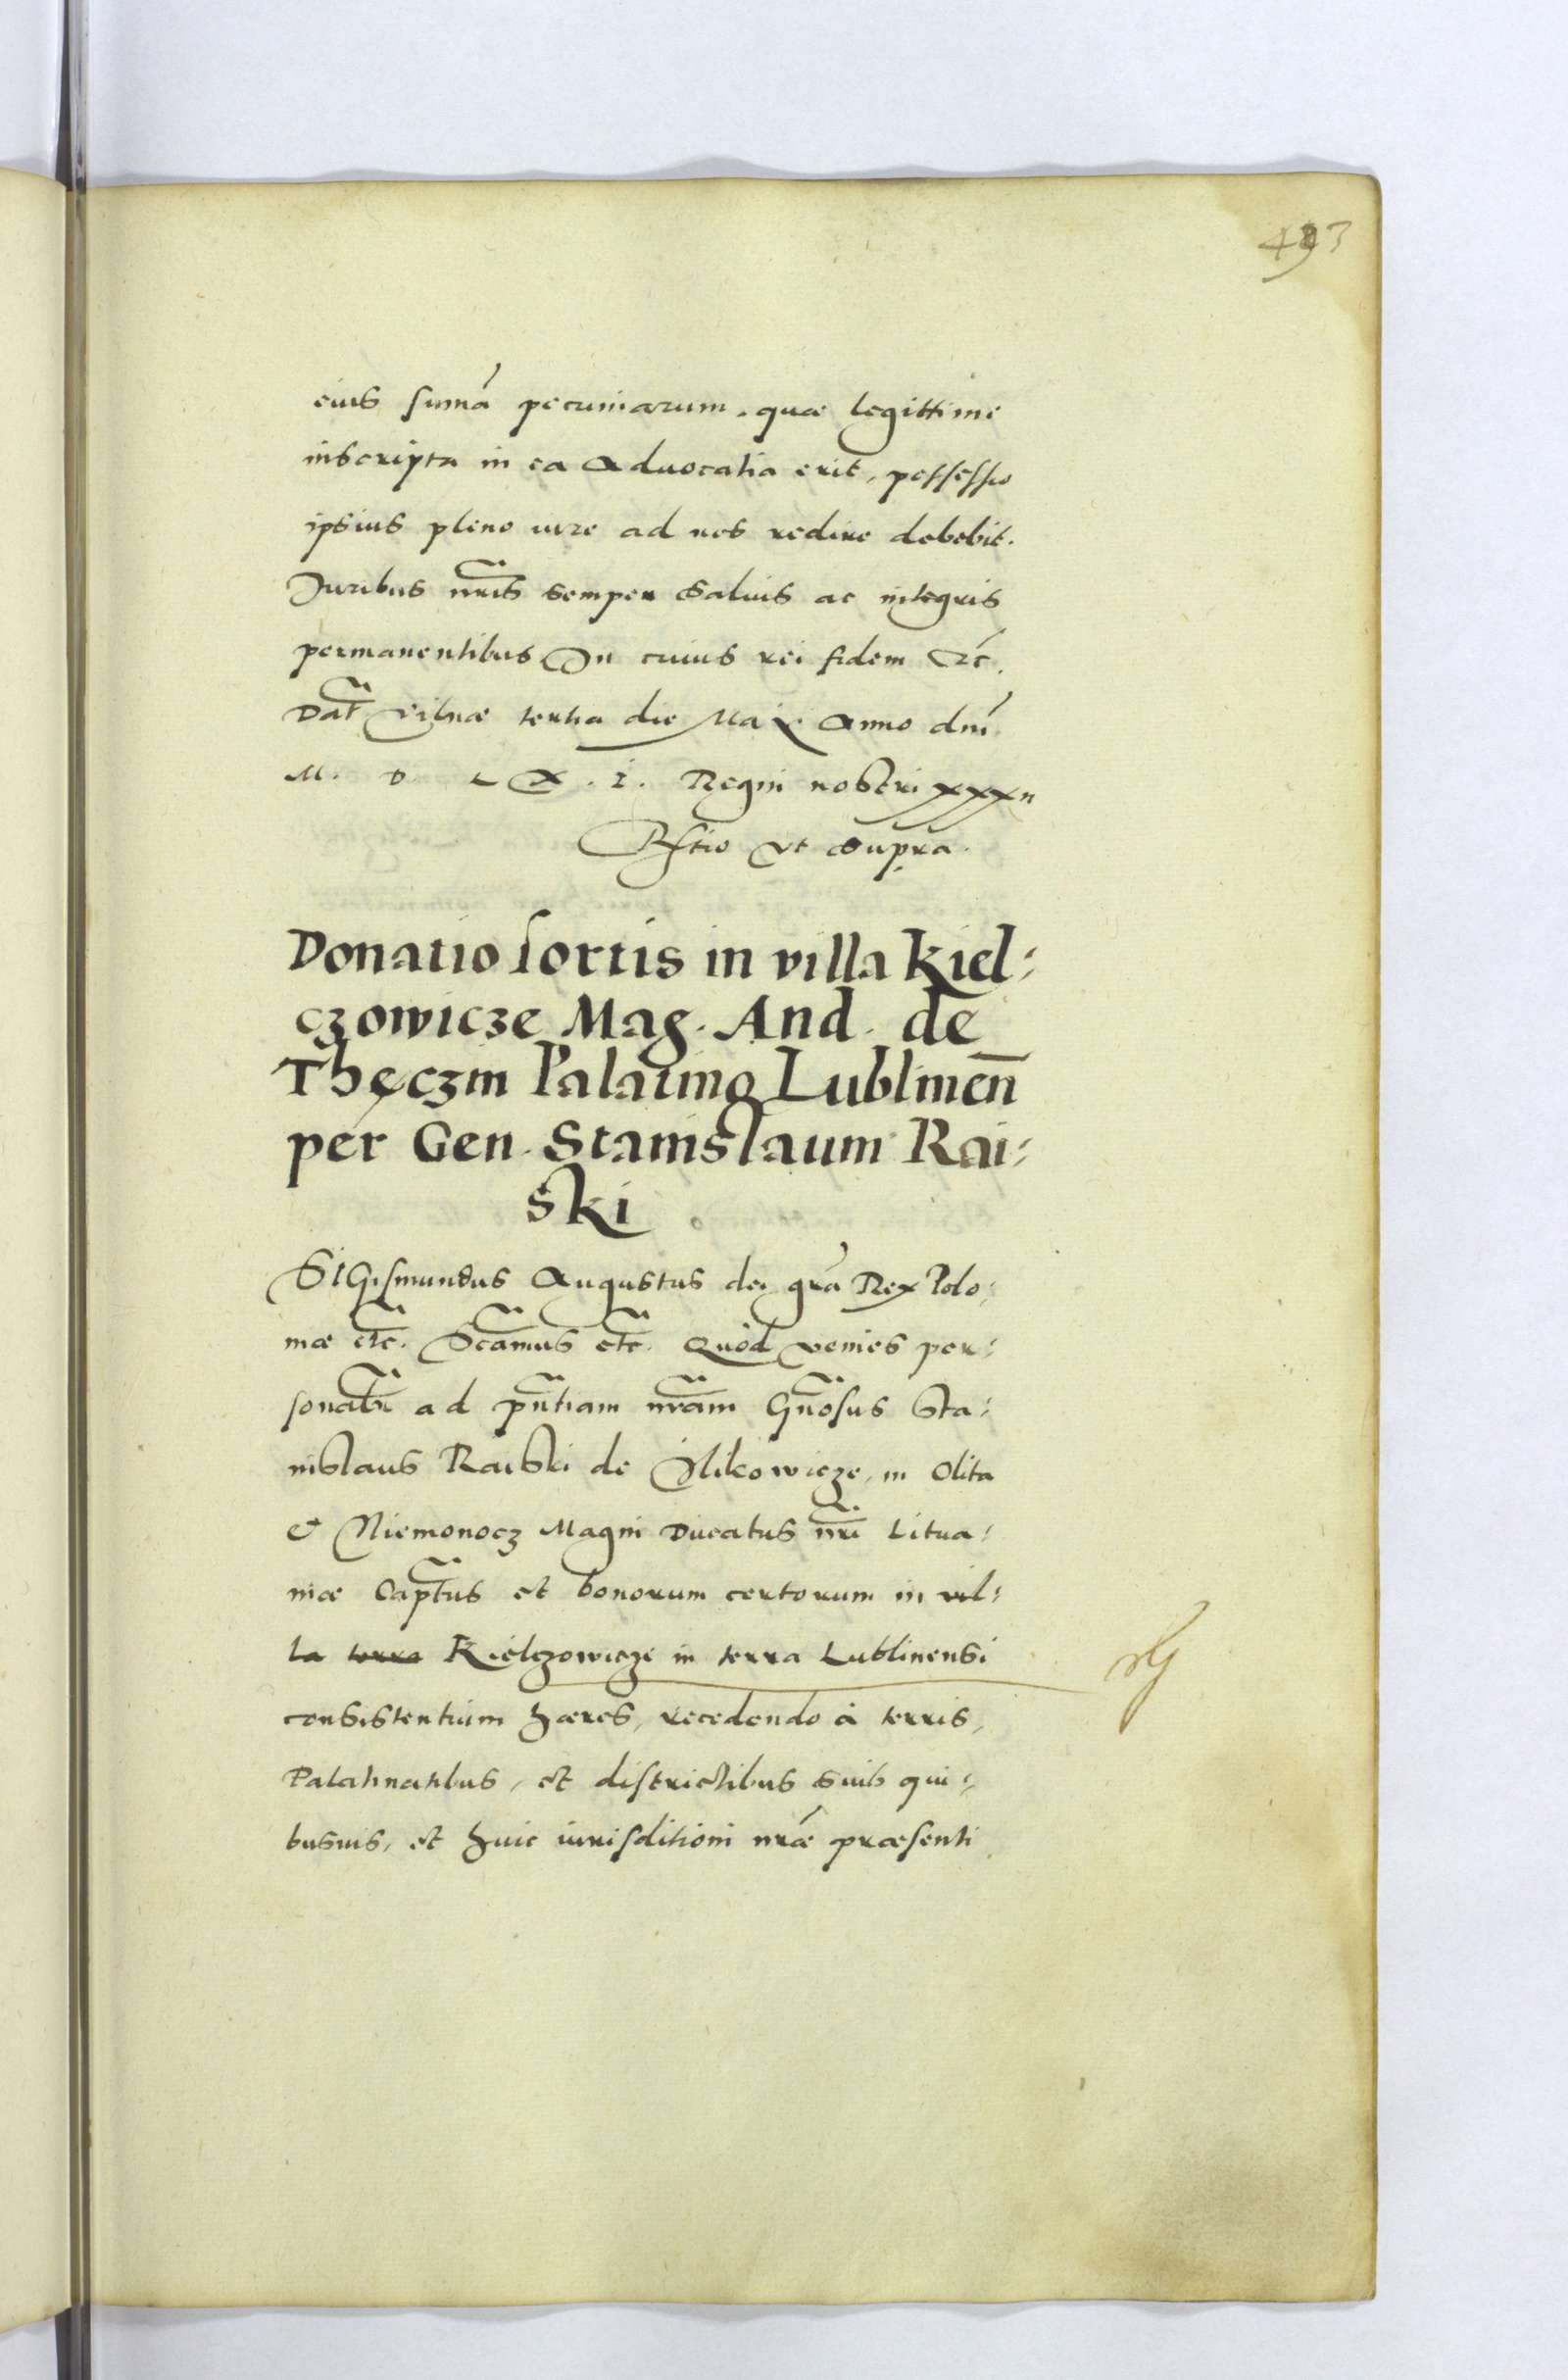 493
eius sum̃a pecuniarum, quae legittime
inscripta in ea Aduocatia erit, possessio
ipsius pleno iure ad nos redire debebit.
Juribus nr̃is semper saluis ac integris
permanentibus In cuius rei fidem etc̃.
Dat̃ Vilnae tertia die Maij Anno dnĩ
M. D L X . I. Regni nostri xxxii
Rſtio vt supra.
Donatio sortis in villa Kiel=
czowicze Mag. And. de
Thęczin Palatino Lublinen̄
per Gen. Stanislaum Rai=
ski
SIGismundus Augustus dei gr̃a Rex Polo=
niae etc̃. Sc̃amus etc̃. Quod venies per=
sonalr̃ ad pñtiam nr̃am Gñosus Sta=
nislaus Raiski de Nikowicze, in Olita
& Niemonocz Magni Ducatus nr̃i Litua=
niae Capt̃us et bonorum certorum in vil=
la terra Kielczowicze in terra Lublinensi
consistentium haeres, recedendo à terris,
Palatinatibus, et districtibus suis qui=
busuis, et huic iurisditioni nr̃ae praesenti